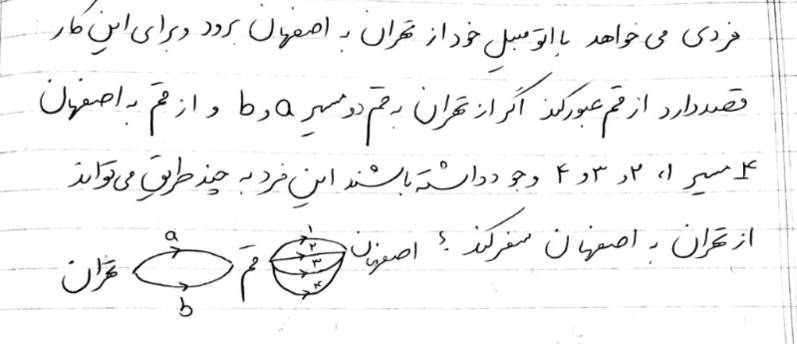 فردی می خواهد با اتومبیل خود از تهران به اصفهان برود و برای این کار
قصد دارد از قم عبور کند اگر از تهران به قم دو مسیر a و b و از قم به اصفهان
۴ مسیر ۱، ۲و ۳و ۴ وجود داشته باشند این فرد به چند طریق می تواند
از تهران به اصفهان سفر کند ؟
تهران a b قم ۱ ۲ ۳ ۴ اصفهان